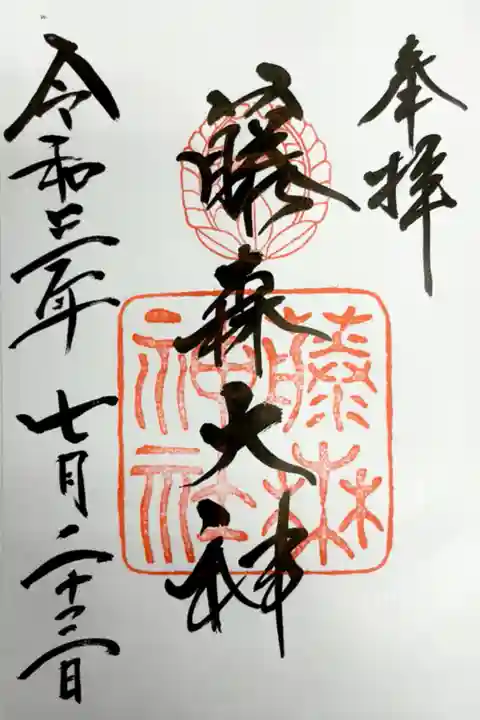 奉拝
藤森大神
藤森
神社
令和三年 七月二十三日